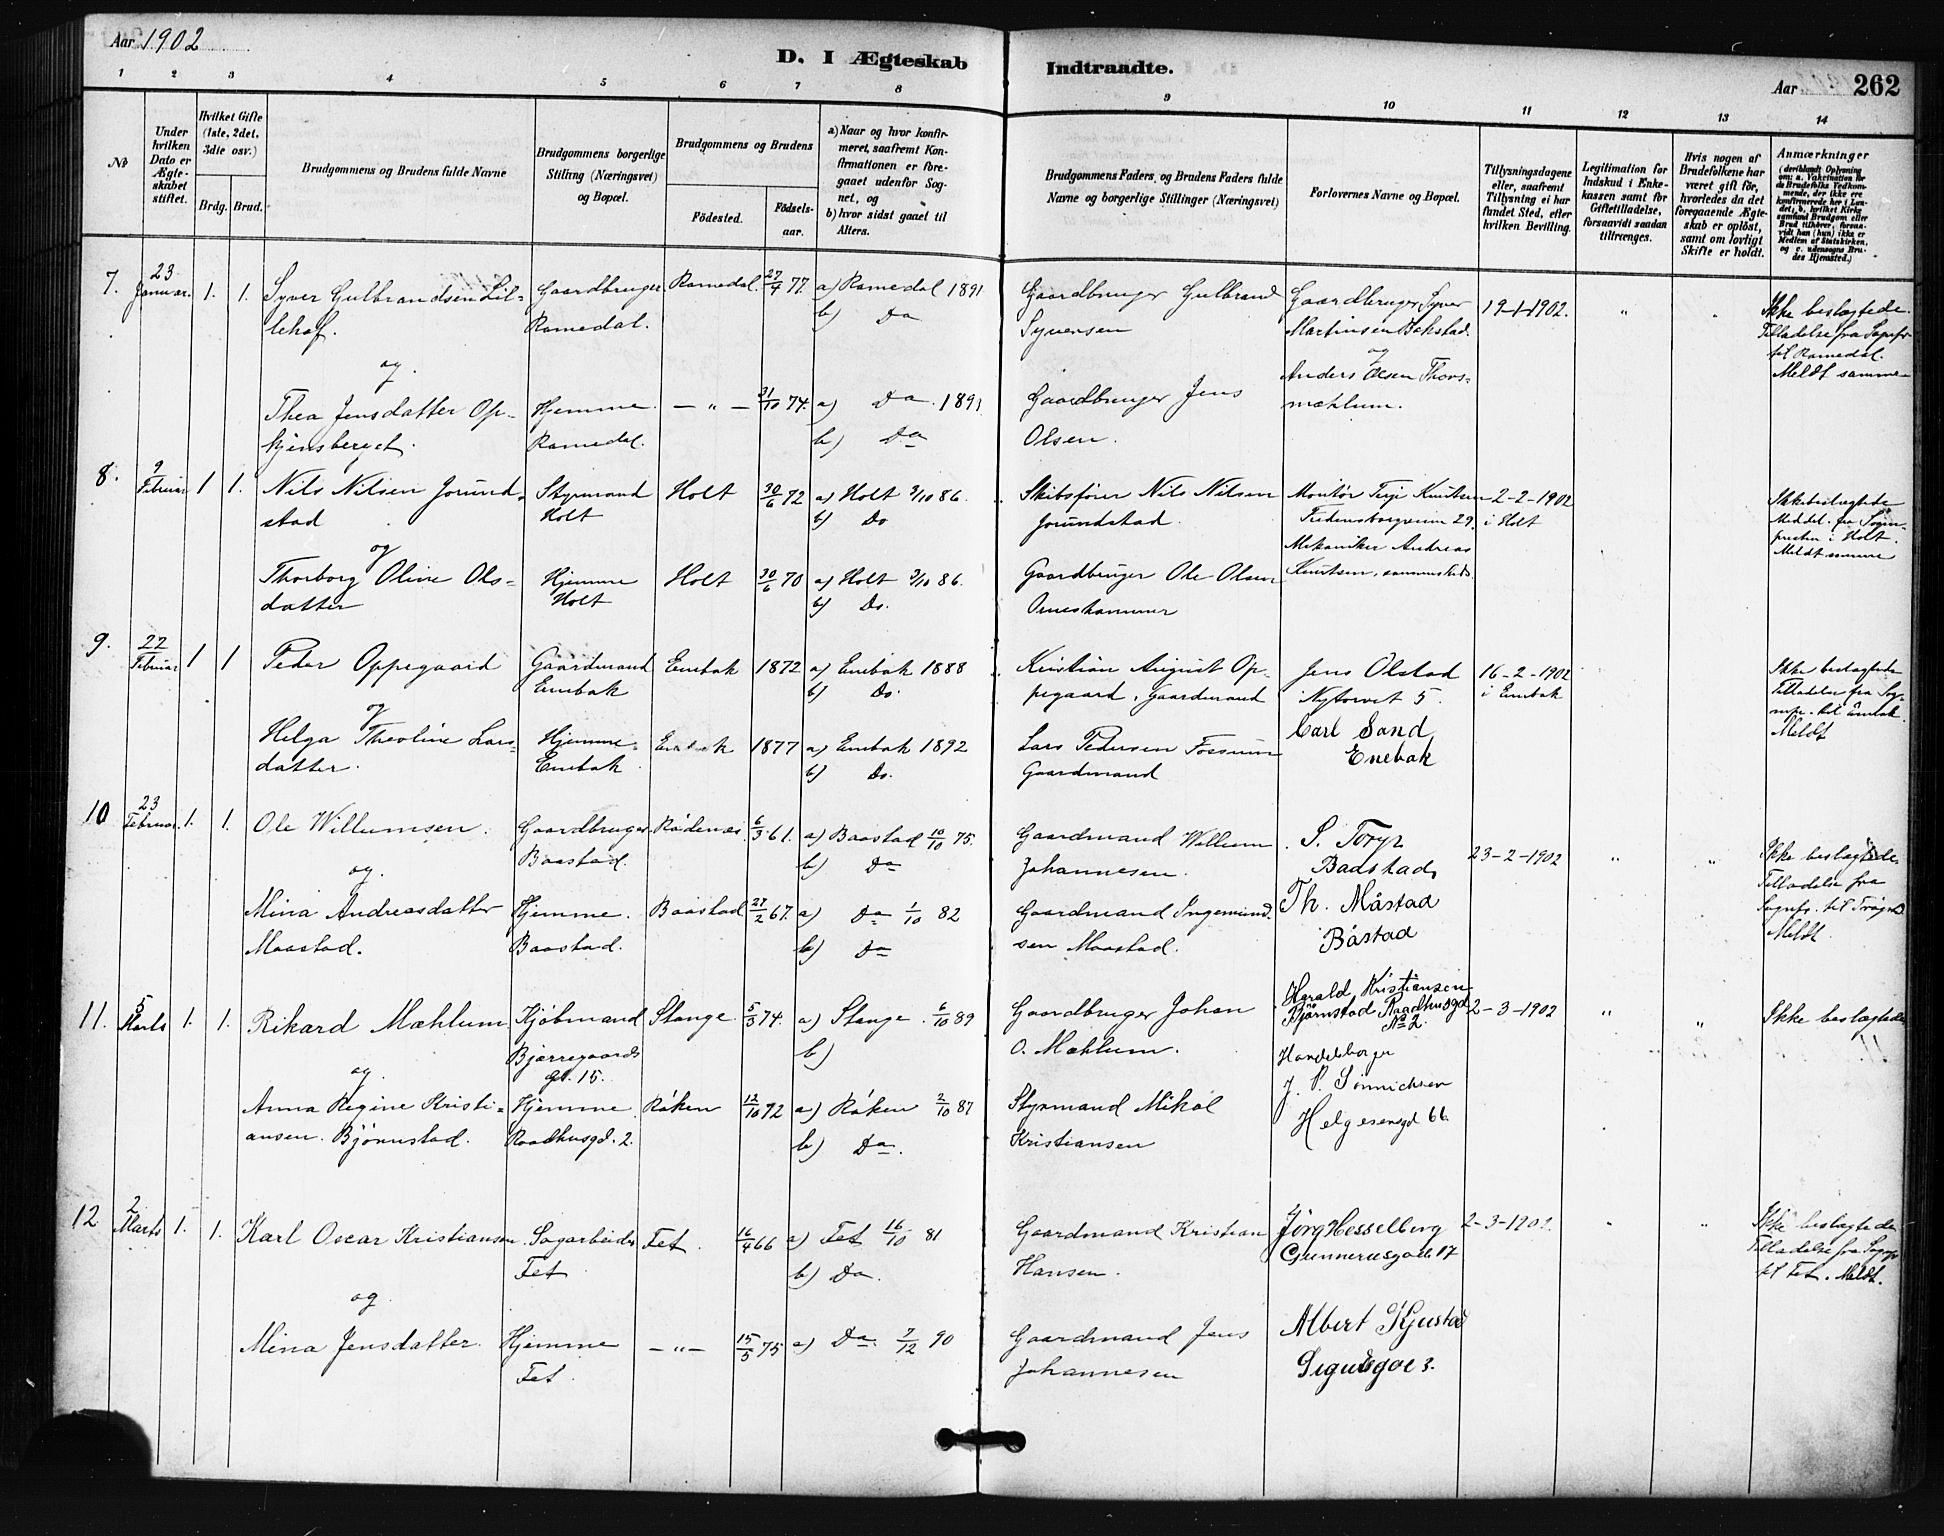 Aar 1902
D. I Ægteskab Indtraadte.
Aar 262
1 2 3 4 5 6 7 8 9 10 11 12 13 14
No
Under hvilken Dato er Ægteskabet stiftet.
Hvilket Gifte (1ste, 2det, 3die osv.)
Brdg. Brud.
Brudgommens og Brudens fulde Navne
Brudgommens borgerlige Stilling (Næringsvei) og Bopæl.
Brudgommens og Brudens
Födested.
Födselsaar.
a) Naar og hvor konfirmeret, saafremt Konfirmationen er foregaaet udenfor Sognet, og
b) hvor sidst gaaet til Alters.
Brudgommens Faders, og Brudens Faders fulde Navne og borgerlige Stillinger (Næringsvei)
Forlovernes Navne og Bopæl.
Tillysningsdagene eller, saafremt Tillysning ei har fundet Sted, efter hvilken Bevilling.
Legitimation for Indskud i Enkekassen samt for Giftetilladelse, forsaavidt saadan tiltrænges.
Hvis nogen af Brudefolkene har været gift för, hvorledes da det foregaaende Ægteskab er oplöst, samt om lovligt Skifte er holdt.
Anmærkninger
(deriblandt Oplysning om: a. Vakcination for de Brudefolks Vedkommende, der ikke ere konfirmerede her i Landet, b. hvilket Kirkesamfund Brudgom eller Brud tilhører, forsaavidt han (hun) ikke er Medlem af Statskirken, og c. udensogns Brudes Hjemsted.)
7. 23 Januar. 1. 1. Syver Gulbrandsen Lillehof. Gaardbruger Romedal. Romedal. 27/4 77. a) Romedal 1891 b) Do Gaardbruger Gulbrand Syversen Gaardbruger Syver Martinsen Bekstad. 19-1-1902. " Ikke beslægtede. Tilladelse fra Sognepr til Romedal. Meldt samme
og og
Thea Jensdatter Opkjinsberget. Hjemme. Romedal. — " — 31/10 74. a) Do. 1891 b) Do Gaardbruger Jens Olsen. Anders Olsen Thorsmæhlum.
8. 9 Februar 1 1. Nils Nilsen Jorundstad Styrmand Holt Holt 30/6 72 a) Holt 3/10 86. b) Do Skibsfører Nils Nilsen Jorundstad. Montør Terje Knutsen Fredensborgveien 29. 2-2-1902 i Holt Ikke beslægtede Meddel. fra Sognepresten i Holt. Meldt samme
og
Thorborg Oline Olsdatter Hjemme Holt Holt 30/6 70 a) Holt 3/10 86. b) Do. Gaardbruger Ole Olsen Mekaniker Andreas Knutsen, sammesteds.
9. 22 Februar 1 1 Peder Oppegaard Gaardmand Enebak Enebak 1872 a) Enebak 1888 b) Do. Kristian August Oppegaard, Gaardmand Jens Olstad Nytorvet 5. 16-2-1902 i Enebak Ikke beslægtede Tilladelse fra Sognepr. til Enebak. Meldt
og
Helga Theoline Larsdatter. Hjemme. Enebak Enebak 1877 a) Enebak 1892 b) Do. Lars Pedersen Fossum Gaardmand Carl Sand Enebak
10 23 Februar. 1. 1. Ole Willumsen. Gaardbruger Baastad. Rødenes 6/3 61. a) Baastad 10/10 75. b) Do Gaardmand Willum Johannesen. S. Toryp Badstad, 23-2-1902 " " Ikke beslægtede Tilladelse fra Sognepr. til Trøgst. Meldt.
og.
Mina Andreasdatter Maastad. Hjemme. Baastad. Baastad 27/2 67. a) Do 1/10 82 b) Do Gaardmand Ingemundsen Maastad. Th. Måstad Båstad
11. 5 Marts 1. 1. Rikard Mæhlum Kjøbmand Bjerregaards gt. 15. Stange 5/3 74. a) Stange. 6/10 89 b) Gaardbruger Johan O. Mæhlum. Harald Kristiansen Bjørnstad Raadhusgd No 2. 2-3-1902 " " Ikke beslægtede
og
Anna Regine Kristiansen Bjørnstad. Hjemme Raadhusgd. 2. Røken 12/10 72 a) Røken 2/10 87 b) Do. Styrmand Mikal Kristiansen Handelsborger J. P. Sønnichsen Helgesensgd 66.
12. 2 Marts 1. 1. Karl Oscar Kristiansen. Sagarbeider Fet Fet. 16/4 66 a) Fet 16/10 81 b) Do. Gaardmand Kristian Hansen. Jörg Hesselberg Gunnerusgade 17 2-3-1902. " " Ikke beslægtede Tilladelse fra Sognepr til Fet. Meldt.
og
Mina Jensdatter. Hjemme Fet. — " — 15/5 75 a) Do. 7/12 90 Gaardmand Jens Johannesen Albert Kjustad